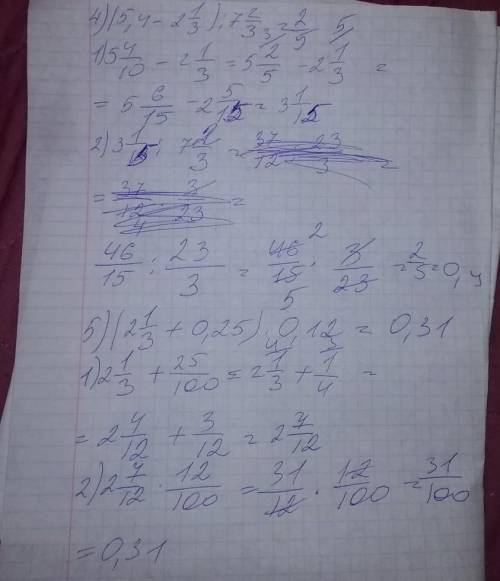 4) (5,4 - 2 1/3) : 7 2/3 = 2/5
1) 5 4/10 - 2 1/3 = 5 2/5 - 2 1/3 =
= 5 6/15 - 2 5/15 = 3 1/15
2) 3 1/15 : 7 2/3 = 37/12 : 23/3 =
= 37/12 · 3/23 =
46/15 : 23/3 = 46/15 · 3/23 = 2/5 = 0,4
5) (2 1/3 + 0,25) · 0,12 = 0,31
1) 2 1/3 + 25/100 = 2 1/3 + 1/4 =
= 2 4/12 + 3/12 = 2 7/12
2) 2 7/12 · 12/100 = 31/12 · 12/100 = 31/100
= 0,31